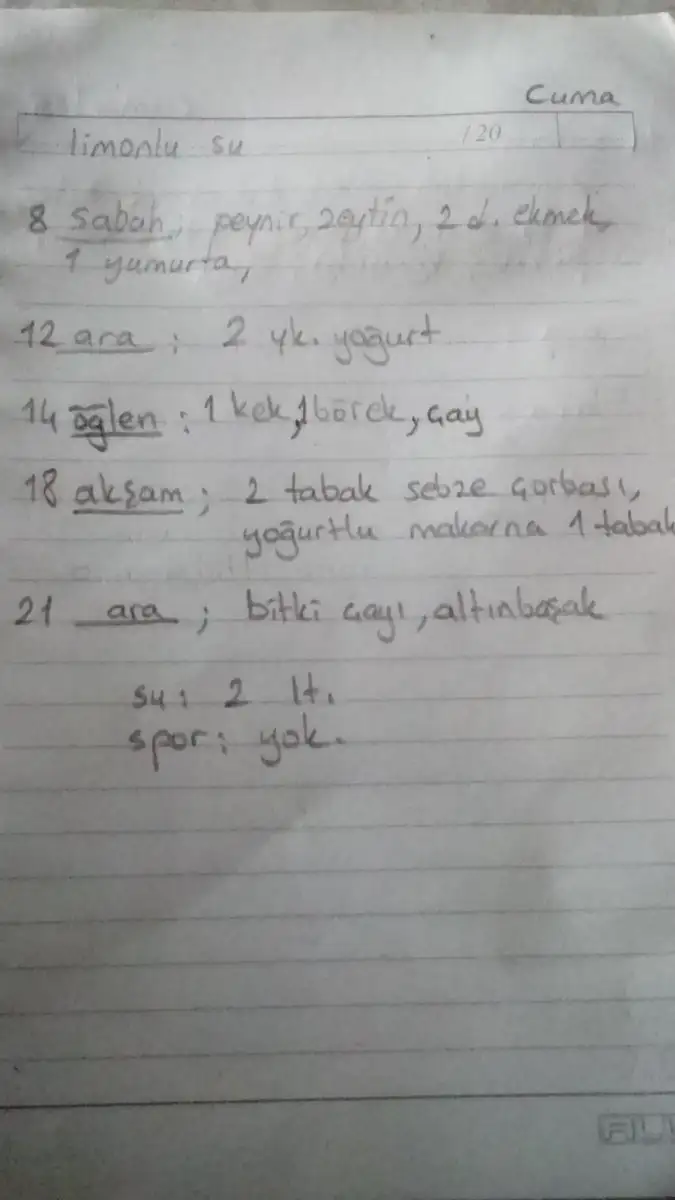 Cuma
limonlu su /20
8 sabah; peynir, zeytin, 2 d. ekmek,
1 yumurta,
12 ara; 2 yk. yoğurt
14 öğlen; 1 kek, 1 börek, çay
18 akşam; 2 tabak sebze çorbası,
yoğurtlu makarna 1 tabak
21 ara; bitki çayı, altınbaşak
su; 2 lt.
spor; yok.